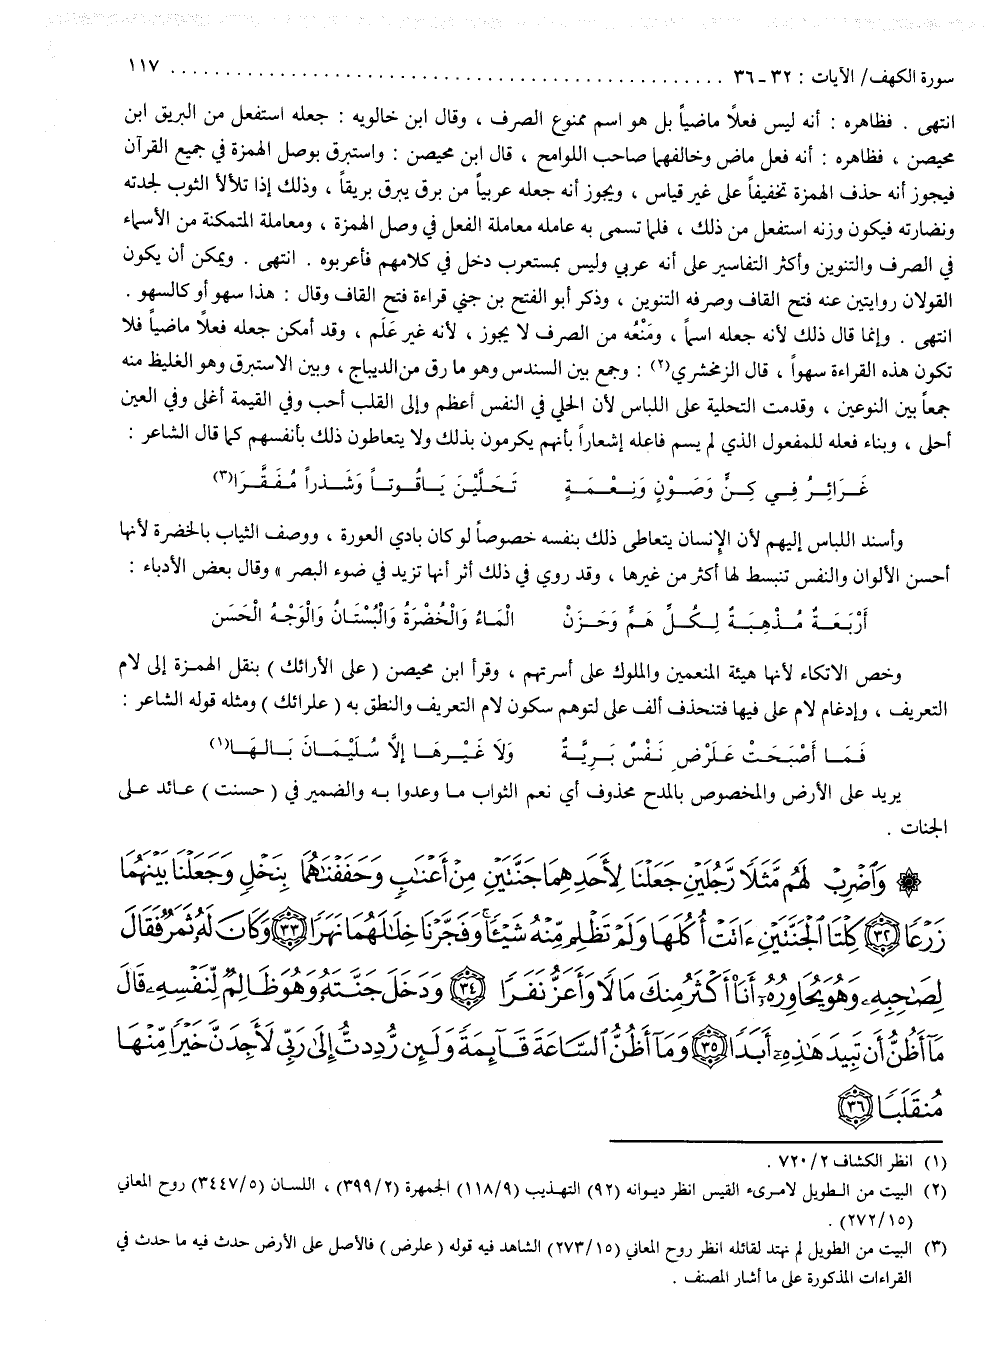 سورة الكهف/ الآيات : ٣٢ ـ ٣٦ ................................................ ١١٧
انتهى . فظاهره : أنه ليس فعلًا ماضياً بل هو اسم ممنوع الصرف ، وقال ابن خالويه : جعله استفعل من البريق ابن
محيصن ، فظاهره : أنه فعل ماض وخالفهما صاحب اللوامح ، قال ابن محيصن : واستبرق بوصل الهمزة في جميع القرآن
فيجوز أنه حذف الهمزة تخفيفاً على غير قياس ، ويجوز أنه جعله عربياً من برق يبرق بريقاً ، وذلك إذا تلألأ الثوب لجدته
ونضارته فيكون وزنه استفعل من ذلك ، فلما تسمى به عامله معاملة الفعل في وصل الهمزة ، ومعاملة المتمكنة من الأسماء
في الصرف والتنوين وأكثر التفاسير على أنه عربي وليس بمستعرب دخل في كلامهم فأعربوه . انتهى . ويمكن أن يكون
القولان روايتين عنه فتح القاف وصرفه التنوين ، وذكر أبو الفتح بن جني قراءة فتح القاف وقال : هذا سهو أو كالسهو .
انتهى . وإنما قال ذلك لأنه جعله اسماً ، ومَنْعُه من الصرف لا يجوز ، لأنه غير عَلَم ، وقد أمكن جعله فعلًا ماضياً فلا
تكون هذه القراءة سهواً ، قال الزمخشري(٢) : وجمع بين السندس وهو ما رق من الديباج ، وبين الاستبرق وهو الغليظ منه
جمعاً بين النوعين ، وقدمت التحلية على اللباس لأن الحلي في النفس أعظم وإلى القلب أحب وفي القيمة أغلى وفي العين
أحلى ، وبناء فعله للمفعول الذي لم يسم فاعله إشعاراً بأنهم يكرمون بذلك ولا يتعاطون ذلك بأنفسهم كما قال الشاعر :
غَرَائِرُ فِي كِنٍّ وَصَوْنٍ وَنِعْمَةٍ تَحَلَّيْنَ يَاقُوتاً وَشَذراً مُفَقَّرَا(٣)
وأسند اللباس إليهم لأن الإنسان يتعاطى ذلك بنفسه خصوصاً لو كان بادي العورة ، ووصف الثياب بالخضرة لأنها
أحسن الألوان والنفس تنبسط لها أكثر من غيرها ، وقد روي في ذلك أثر أنها تزيد في ضوء البصر » وقال بعض الأدباء :
أَرْبَعَةٌ مُذْهِبَةٌ لِكُلِّ هَمٍّ وَحَزَنْ الْمَاءُ وَالْخُضْرَةُ وَالْبُسْتَانُ وَالْوَجْهُ الْحَسَن
وخص الاتكاء لأنها هيئة المنعمين والملوك على أسرتهم ، وقرأ ابن محيصن ( على الأرائك ) بنقل الهمزة إلى لام
التعريف ، وإدغام لام على فيها فتنحذف ألف على لتوهم سكون لام التعريف والنطق به ( علرائك ) ومثله قوله الشاعر :
فَمَا أَصْبَحَتْ عَلَرْضِ نَفْسٌ بَرِيَّةٌ وَلَا غَيْرِهَا إِلَّا سُلَيْمَانَ بَالَهَا(١)
يريد على الأرض والمخصوص بالمدح محذوف أي نعم الثواب ما وعدوا به والضمير في ( حسنت ) عائد على
الجنات .
۞ وَٱضْرِبْ لَهُم مَّثَلًا رَّجُلَيْنِ جَعَلْنَا لِأَحَدِهِمَا جَنَّتَيْنِ مِنْ أَعْنَٰبٍ وَحَفَفْنَٰهُمَا بِنَخْلٍ وَجَعَلْنَا بَيْنَهُمَا
زَرْعًا ﴿٣٢﴾ كِلْتَا ٱلْجَنَّتَيْنِ ءَاتَتْ أُكُلَهَا وَلَمْ تَظْلِم مِّنْهُ شَيْـًٔا وَفَجَّرْنَا خِلَٰلَهُمَا نَهَرًا ﴿٣٣﴾ وَكَانَ لَهُۥ ثَمَرٌ فَقَالَ
لِصَٰحِبِهِۦ وَهُوَ يُحَاوِرُهُۥٓ أَنَا۠ أَكْثَرُ مِنكَ مَالًا وَأَعَزُّ نَفَرًا ﴿٣٤﴾ وَدَخَلَ جَنَّتَهُۥ وَهُوَ ظَالِمٌ لِّنَفْسِهِۦ قَالَ
مَآ أَظُنُّ أَن تَبِيدَ هَٰذِهِۦٓ أَبَدًا ﴿٣٥﴾ وَمَآ أَظُنُّ ٱلسَّاعَةَ قَآئِمَةً وَلَئِن رُّدِدتُّ إِلَىٰ رَبِّى لَأَجِدَنَّ خَيْرًا مِّنْهَا
مُنقَلَبًا ﴿٣٦﴾
(١) انظر الكشاف ٧٢٠/٢ .
(٢) البيت من الطويل لامرىء القيس انظر ديوانه (٩٢) التهذيب (١١٨/٩) الجمهرة (٣٩٩/٢) ، اللسان (٣٤٤٧/٥) روح المعاني
(٢٧٢/١٥) .
(٣) البيت من الطويل لم نهتد لقائله انظر روح المعاني (٢٧٣/١٥) الشاهد فيه قوله ( علرض ) فالأصل على الأرض حدث فيه ما حدث في
القراءات المذكورة على ما أشار المصنف .